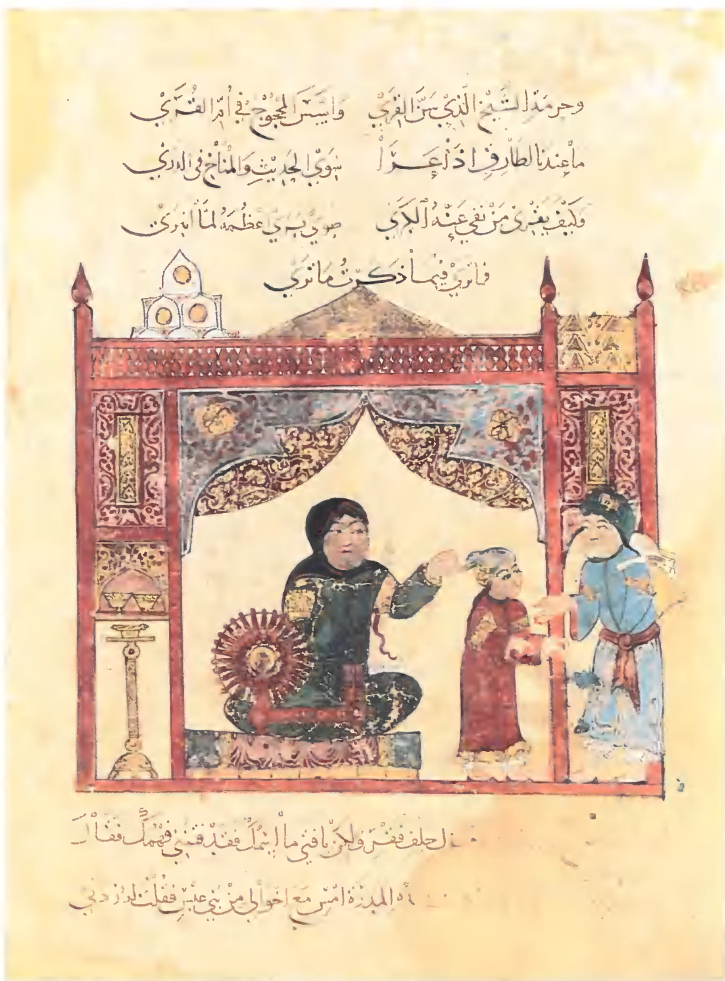 وحرمة الشيخ الذي سن القرى وأسس المحجوج في أم القرى
ما عندنا لطارق إذا عرا سوى الحديث والمناخ في الذرى
وكيف يقري من نفى عنه الكرى طوى برى أعظمه لما انبرى
فما ترى فيما ذكرت ما ترى
حلف فقر ولكن يا فتى ما اسمك فقد فتنني فهمك فقال
المدرة امس مع اخوالي من بني عبس فقلت له زدني